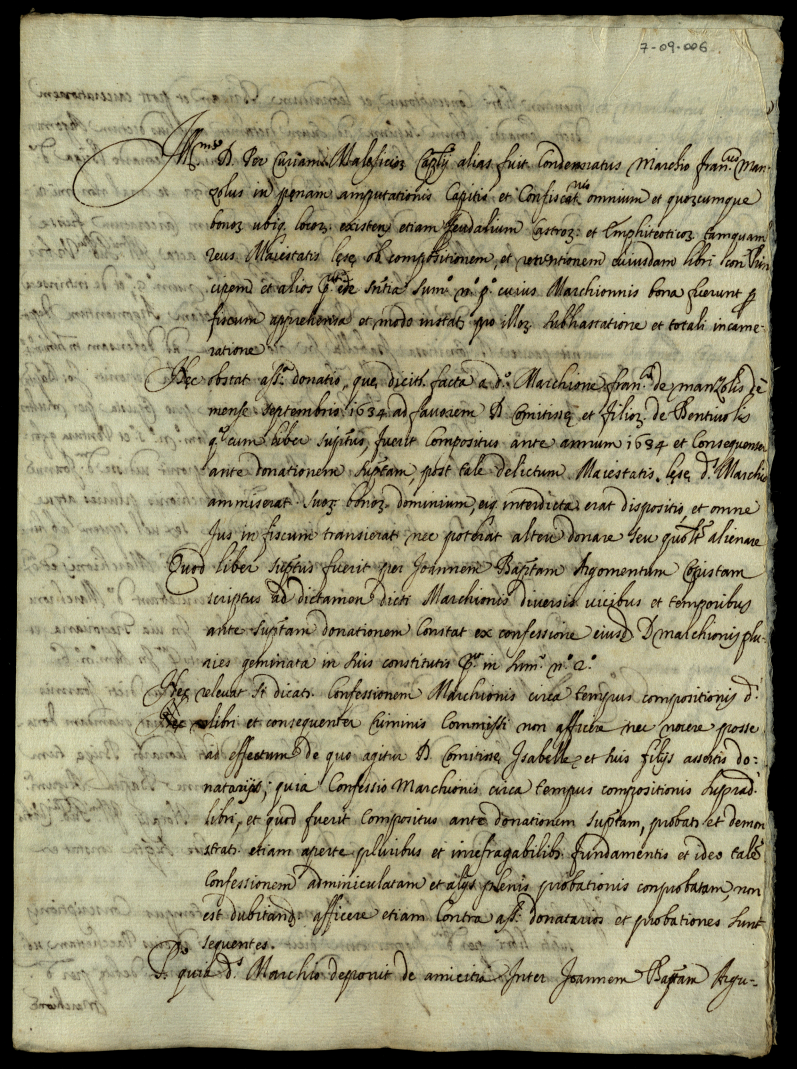 7-09-006
Ill.mo D. Per Curiam Maleficior. Caplij alias fuit Condemnatus Marchio Fran.cus Man-
zolus in penam amputationis Capitis et Confiscat.nis omnium et quorumcumque
bonor. ubiq. locor. existen. etiam feudalium Castror. et Emphiteoticor. tamquam
reus Maiestatis lęsę ob compositionem, et retentionem cuiusdam libri con. Prin-
cipem et alios sntia Sum.o n.o p.o cuius Marchionis bona fuerunt p
fiscum apprehensa et modo instat. pro illor. subhastatione et totali incame-
ratione
Nec obstat ass.a donatio, que dicitr. facta a d.o Marchione Fran.co de Manzolis de
mense septembris 1634 ad favorem D. Comitissę et filior. de Bentivolis
q.a cum liber suptus, fuerit compositus ante annum 1634 et consequenter
ante donationem suptam, post tale delictum Maiestatis lęsę d.s Marchio
ammiserat suor. bonor. dominium, eiq. interdicta erat dispositio et omne
Jus in fiscum transierat nec poterat alteri donare seu alienare
Quod liber suptus fuerit per Joannem Baptam Argomentum Copistam
scriptus ad dictamen dicti Marchionis diversis vicibus et temporibus
ante suptam donationem Constat ex confessione eiusd. D. Marchionis plu-
ries geminata in suis constitutis in Sum.o n.o 2.o
Nec relevat si dicatr. Confessionem Marchionis circa tempus compositionis d.i
libri et consequenter Criminis Commissi non afficere nec nocere posse
ad effectum de quo agitur D. Comitissę Isabellę et suis filijs assertis do-
natarijs; quia Confessio Marchionis circa tempus compositionis suprad.i
libri, et quod fuerit compositus ante donationem suptam, probatr. et demon
stratr. etiam aperte pluribus et irrefragabilib. fundamentis et ideo talem
Confessionem adminiculatam et alijs plenis probationis comprobatam, non
est dubitand. afficere etiam contra ass.s donatarios et probationes sunt
sequentes.
P.o quia d.s Marchio deponit de amicitia Inter Joannem Baptam Argu-